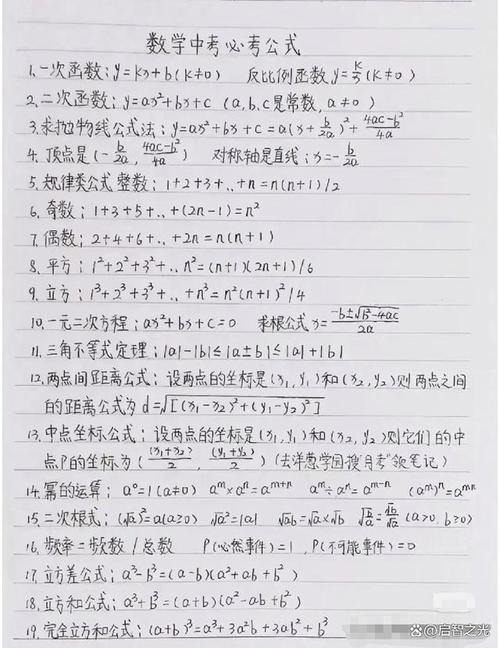 数学中考必考公式
1.一次函数:y=kx+b(k≠0) 反比例函数y=k/x(k≠0)
2.二次函数:y=ax²+bx+c (a,b,c是常数,a≠0)
3.求抛物线公式法:y=ax²+bx+c=a(x+b/2a)²+(4ac-b²)/4a
4.顶点是(-b/2a, (4ac-b²)/4a) 对称轴是直线:x=-b/2a
5.规律类公式 整数:1+2+3+..+n=n(n+1)/2
6.奇数:1+3+5+..+(2n-1)=n²
7.偶数:2+4+6+..+2n=n(n+1)
8.平方:1²+2²+3²+..n²=(n+1)(2n+1)/6
9.立方:1³+2³+3³+..+n³=n²(n+1)²/4
10.一元二次方程:ax²+bx+c=0 求根公式x=(-b±√(b²-4ac))/2a
11.三角不等式定理:|a|-|b|≤|a±b|≤|a|+|b|
12.两点间距离公式:设两点的坐标是(x₁,y₁)和(x₂,y₂)则两点之间
的距离公式为d=√[(x₁-x₂)²+(y₁-y₂)²]
13.中点坐标公式:设两点的坐标是(x₁,y₁)和(x₂,y₂)则它们的中
点P的坐标为((x₁+x₂)/2, (y₁+y₂)/2)(去洋葱学园搜"月考"领笔记)
14.幂的运算:a⁰=1(a≠0) aᵐ×aⁿ=aᵐ⁺ⁿ aᵐ÷aⁿ=aᵐ⁻ⁿ (aᵐ)ⁿ=aᵐⁿ
15.二次根式:(√a)²=a(a≥0) √a²=|a| √ab=√a×√b √(b/a)=√b/√a(a>0,b≥0)
16.频率=频数/总数 P(必然事件)=1,P(不可能事件)=0
17.立方差公式:a³-b³=(a-b)(a²+ab+b²)
18.立方和公式:a³+b³=(a+b)(a²-ab+b²)
19.完全立方和公式:(a+b)³=a³+3a²b+3ab²+b³
@启智之光